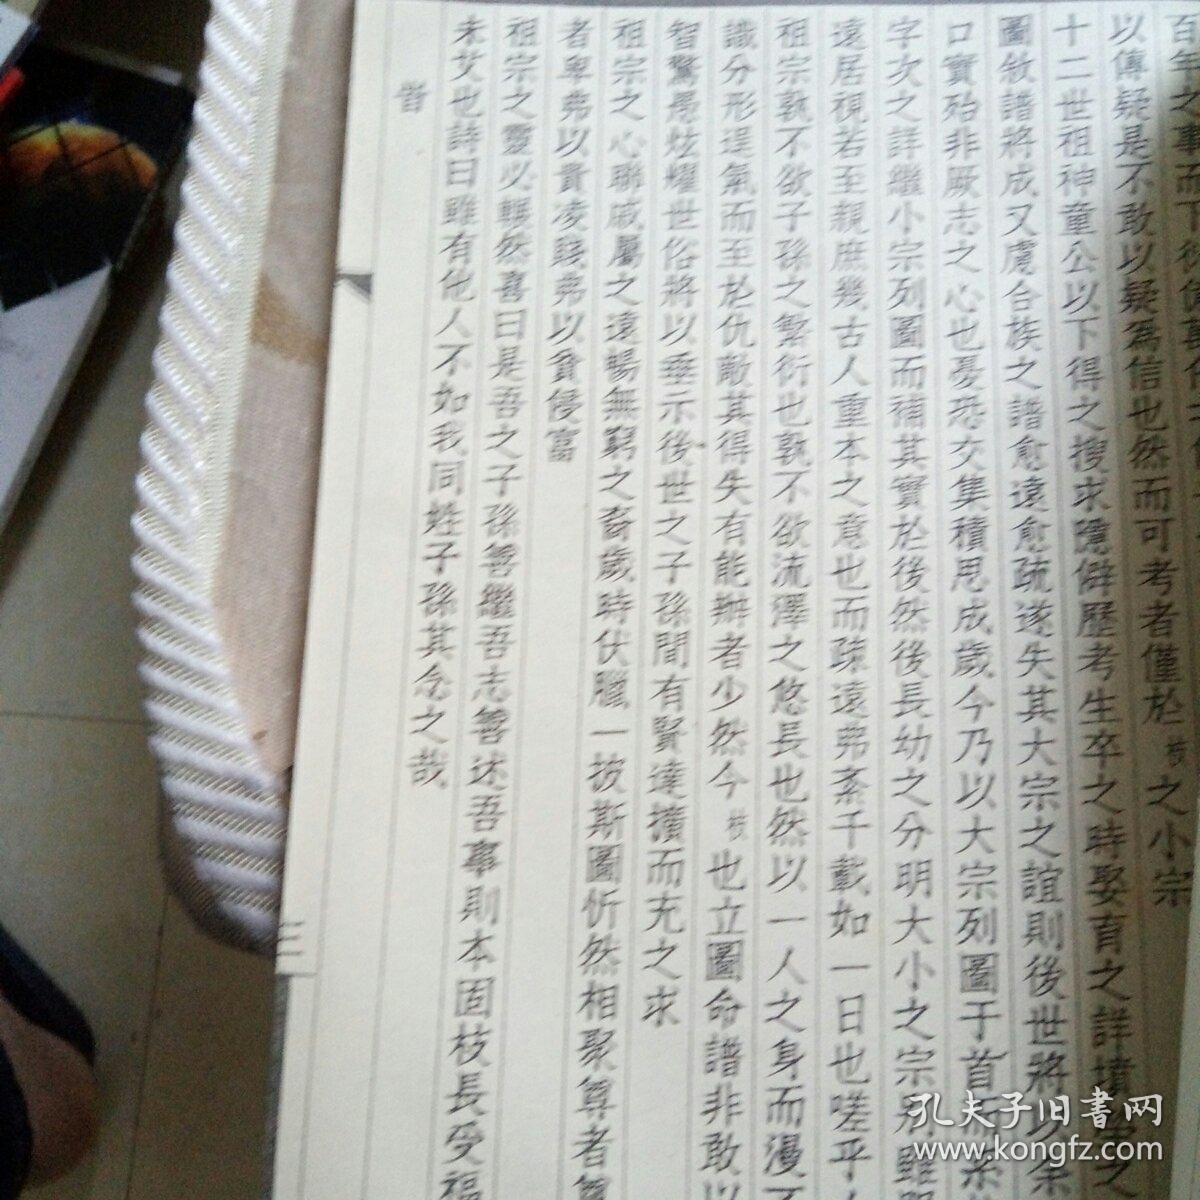 百年之事而下後
以傳疑是不敢以疑為信也然而可考者僅於枝之小宗
十二世祖神童公以下得之搜求隱僻歷考生卒之時娶育之詳墳
圖敘譜將成又慮合族之譜愈遠愈疏遂失其大宗之誼則後世將以余
口實殆非厥志之心也憂恐交集積思成歲今乃以大宗列圖于首而系
字次之詳繼小宗列圖而補其實於後然後長幼之分明大小之宗別雖
遠居視若至親庶幾古人重本之意也而疎遠弗紊千載如一日也嗟乎人
祖宗孰不欲子孫之繁衍也孰不欲流澤之悠長也然以一人之身而漫不
識分形逞氣而至於仇敵其得失有能辦者少然今枝也立圖命譜非敢以
智驚愚炫耀世俗將以垂示後世之子孫間有賢達擴而充之求
祖宗之心聯戚屬之遠暢無窮之裔歲時伏臘一披斯圖忻然相聚尊者尊
者卑弗以貴凌賤弗以貧侵富
祖宗之靈必輾然喜曰是吾之子孫善繼吾志善述吾事則本固枝長受福
未艾也詩曰雖有他人不如我同姓子孫其念之哉
旹
三
孔夫子旧書网
www.kongfz.com